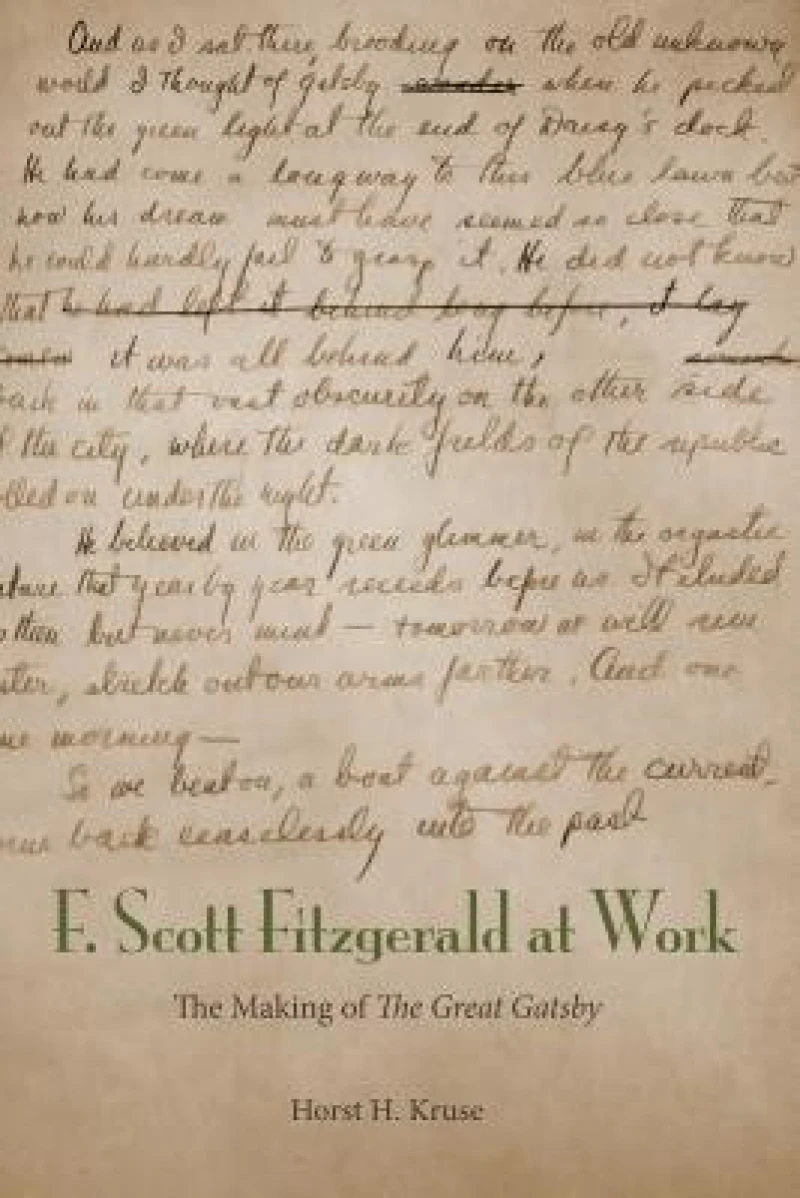 And as I sat there, brooding on the old unknown
world I thought of Gatsby when he picked
out the green light at the end of Daisy's dock.
He had come a long way to this blue lawn but
now his dream must have seemed so close that
he could hardly fail to grasp it. He did not know
that he had left it behind long before, I say
it was all behind him,
back in that vast obscurity on the other side
of the city, where the dark fields of the republic
olled on under the night.
He believed in the green glimmer, in the orgastic
uture that year by year recedes before us. It eluded
us then but never mind — tomorrow we will run
ster, stretch out our arms farther. And one
ne morning—
So we beat on, a boat against the current,
back ceaselessly into the past
F. Scott Fitzgerald at Work
The Making of The Great Gatsby
Horst H. Kruse